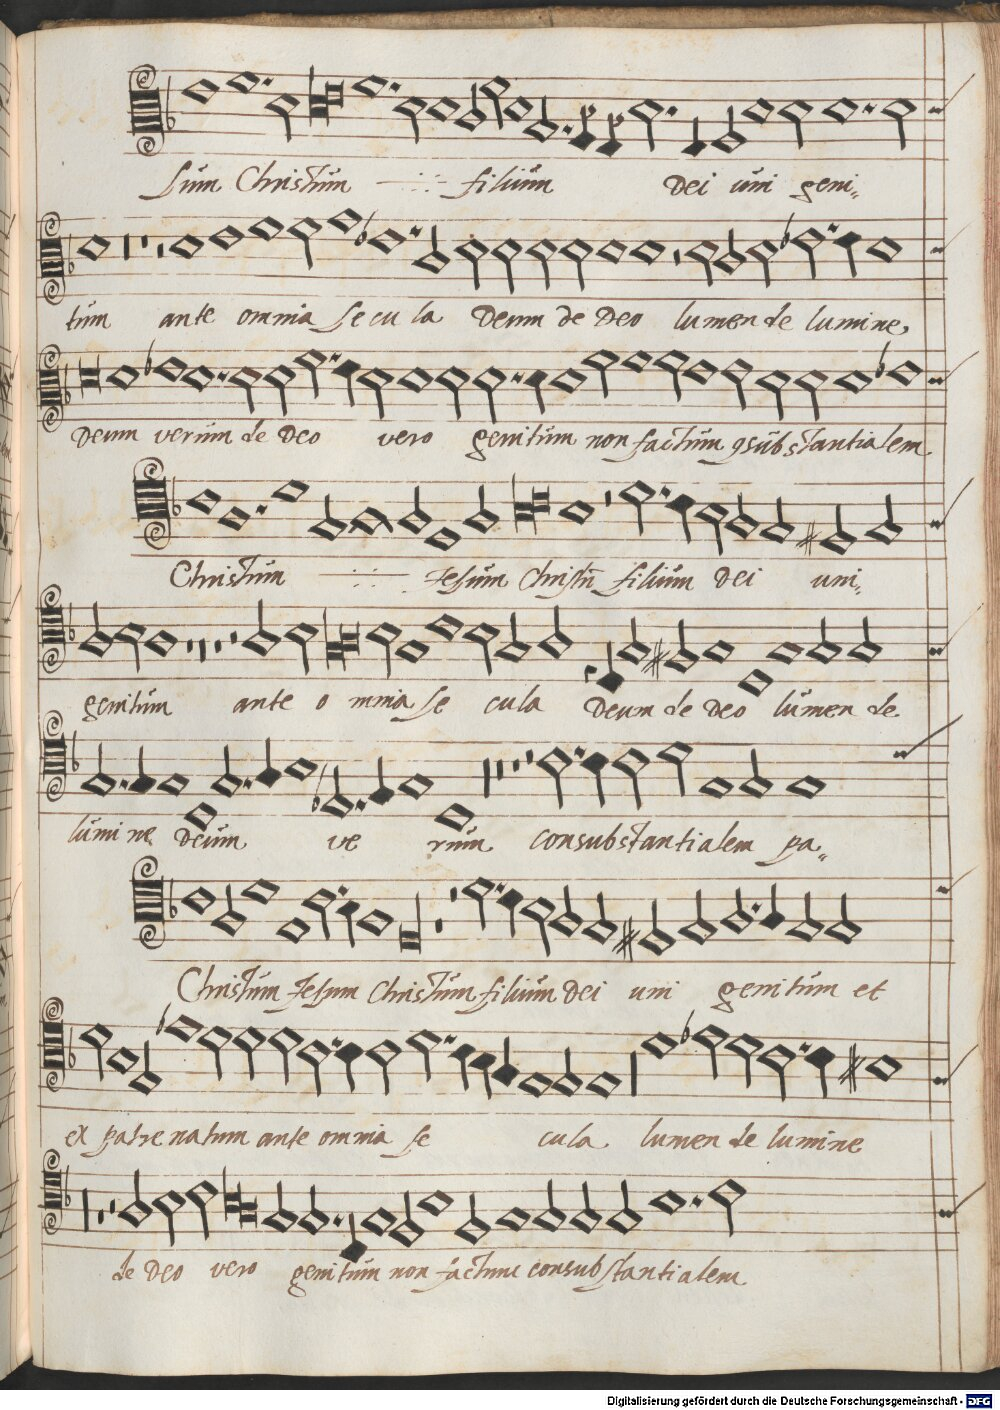 sum Christum filium Dei uni geni„
tum ante omnia secula Deum de Deo lumen de lumine
Deum verum de Deo vero genitum non factum 9substantialem
Christum Jesum Christū filium Dei uni„
genitum ante omnia secula Deum de Deo lumen de
lumine Deum verum consubstantialem pa„
Christum Jesum Christum filium Dei uni genitum et
ex patre natum ante omnia secula lumen de lumine
de Deo vero genitum non factum consubstantialem
Digitalisierung gefördert durch die Deutsche Forschungsgemeinschaft - DFG